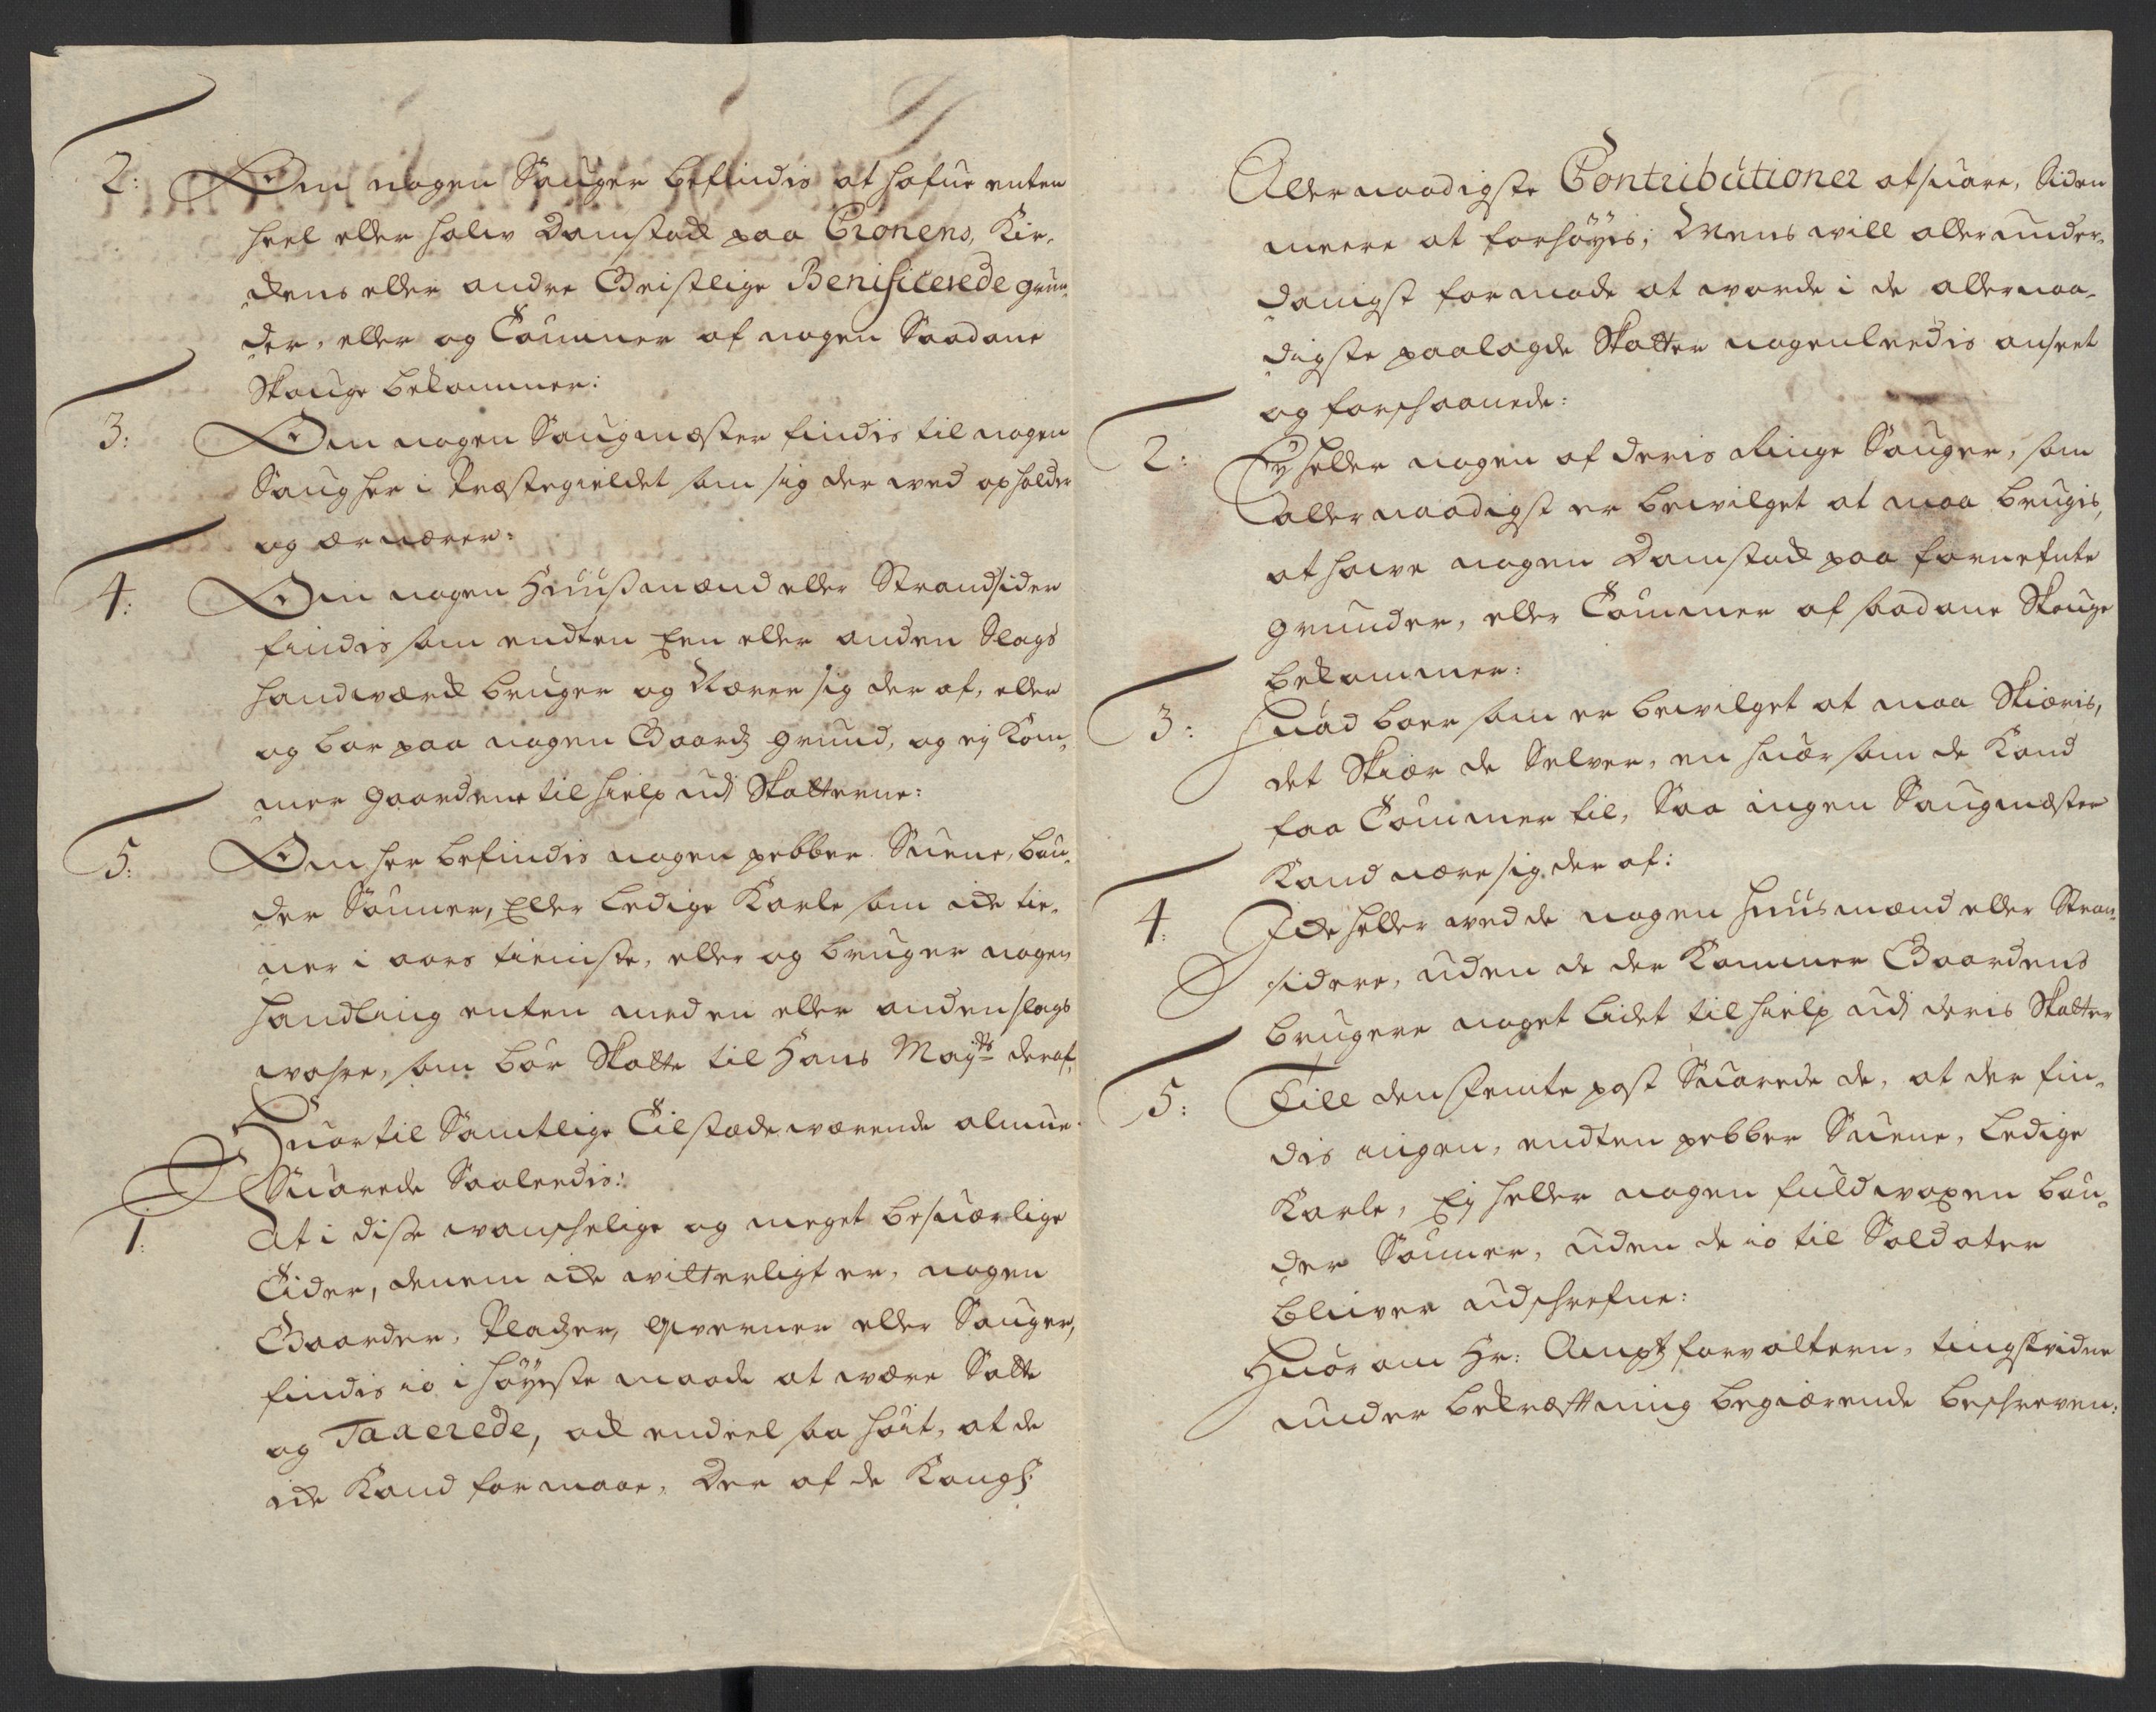 2: Om nogen Sauger befindis at hafue enten
heel eller halv Damstock paa Cronens, Kir-
kens eller andre Geistlige Benificerede grun-
der, eller og Tømmer af nogen Saadane
Skouge bekommer:
3: Om nogen Saugmester findis til nogen
Saug her i Præstegieldet som sig der ved opholder
og ernærer:
4: Om nogen Huusmænd eller Strandsider
findis som endten Een eller anden Slags
Handværck bruger og Nærer sig der af, eller
og boer paa nogen Gaards grund, og ej Kom-
mer gaardene til hielp udj Skatterne:
5: Om her befindis nogen pebber Suene, bøn-
der Sønner, Eller Ledige Karle som icke tie-
ner i aars tieniste, eller og bruger nogen
handling enten med en eller anden slags
wahre, som bør Skatte til Hans Mayts deraf,
Huortil Samtlige Tilstedeværende almue
Suarede Saaledis:
1: At i disse vanschelige og meget besuærlige
Tider, dennem icke vitterligt er, nogen
Gaarder, Pladzer, Qverner eller Sauger,
findis io i høyeste maade at være Satte
og Taxerede, ock endeel saa høit, at de
icke Kand formaae, Der af de Kongl:
Allernaadigste Contributioner at suare, Siden
meere at forhøyes; Mens will allerunder-
danigst formode at worde i de allernaa-
digste paalagde Skatter nogenleedis anseet
og forschaanede:
2: Ey heller nogen af deris Ringe Sauger, som
allernaadigst er bevilget at maa brugis,
at have nogen Damstock paa fornefnte
grunder, eller Tømmer af saadane Skouge
bekommer:
3: Huad boer som er bevilget at maa Skiæris,
det Skiær de Selver, en huer som de Kand
faa Tømmer til, Saa ingen Saugmester
Kand nære sig der af:
4: Icke heller ved de nogen huusmænd eller Stran-
sidere, uden de der Kommer Gaardens
brugere noget Lidet til hielp udj deris Skatter
5: Till den femte post Suarede de, at der fin-
dis ingen, endten pebber Suene, Ledige
Karle, Ej heller nogen fuldvoxen bøn-
der Sønner, uden de io til Soldater
bliver udschrefne:
Huorom Hr: Amptz forvaltern, tingsvidne
under bekræfftning begiærende beschreven: